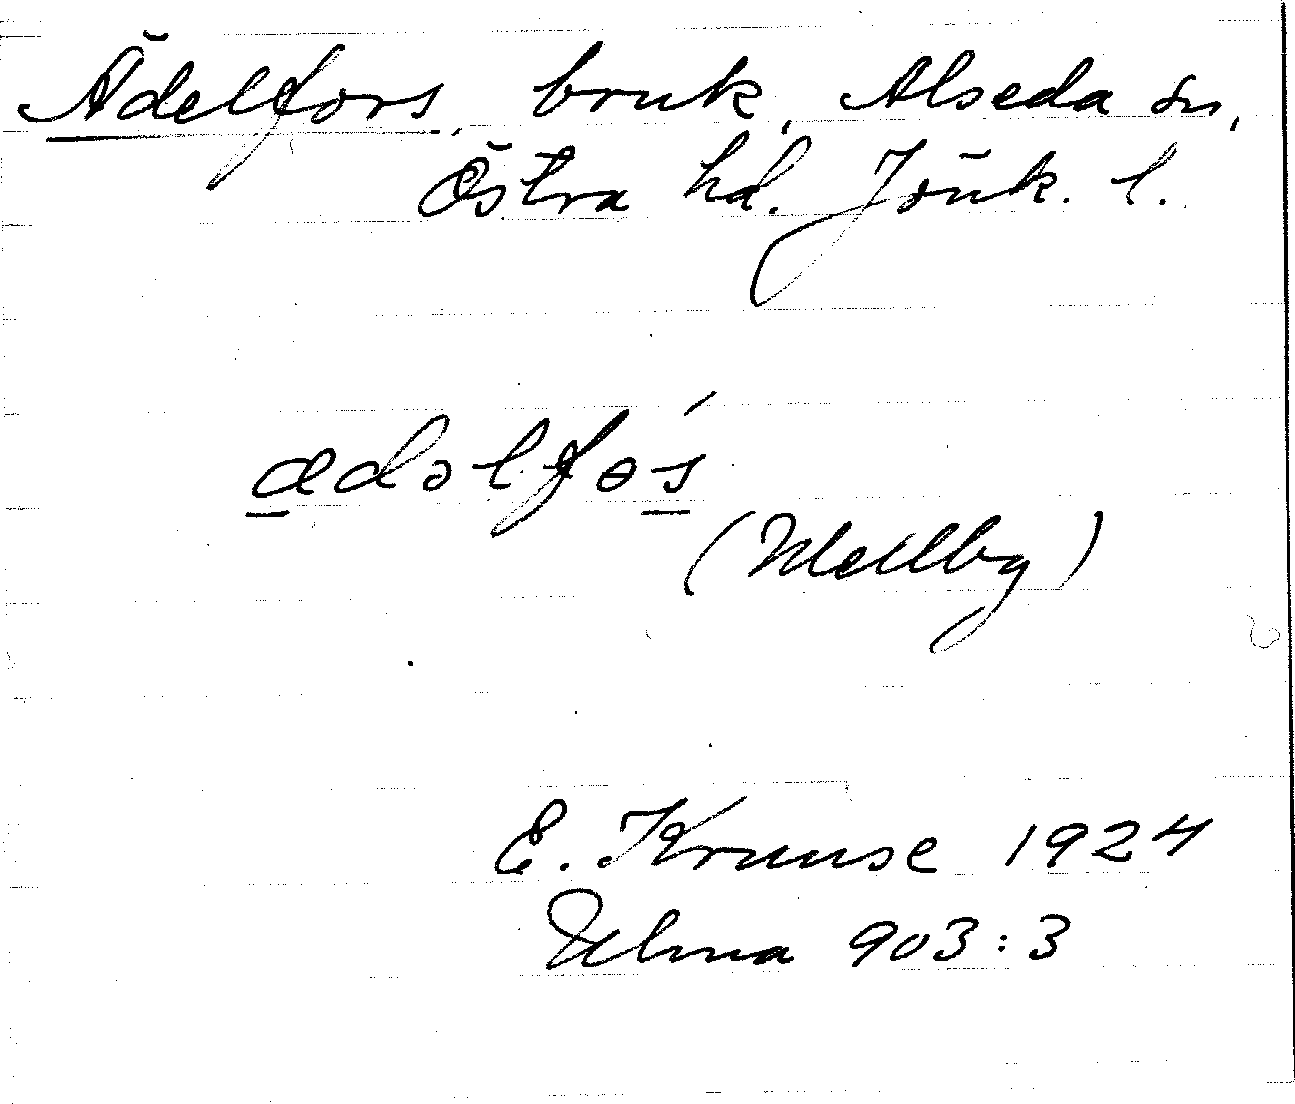 Ädelfors, bruk, Alseda sn,
Östra hd. Jönk. l.
ædəlfɵs´
(Mellby)
E. Kruuse 1924
Ulma 903:3